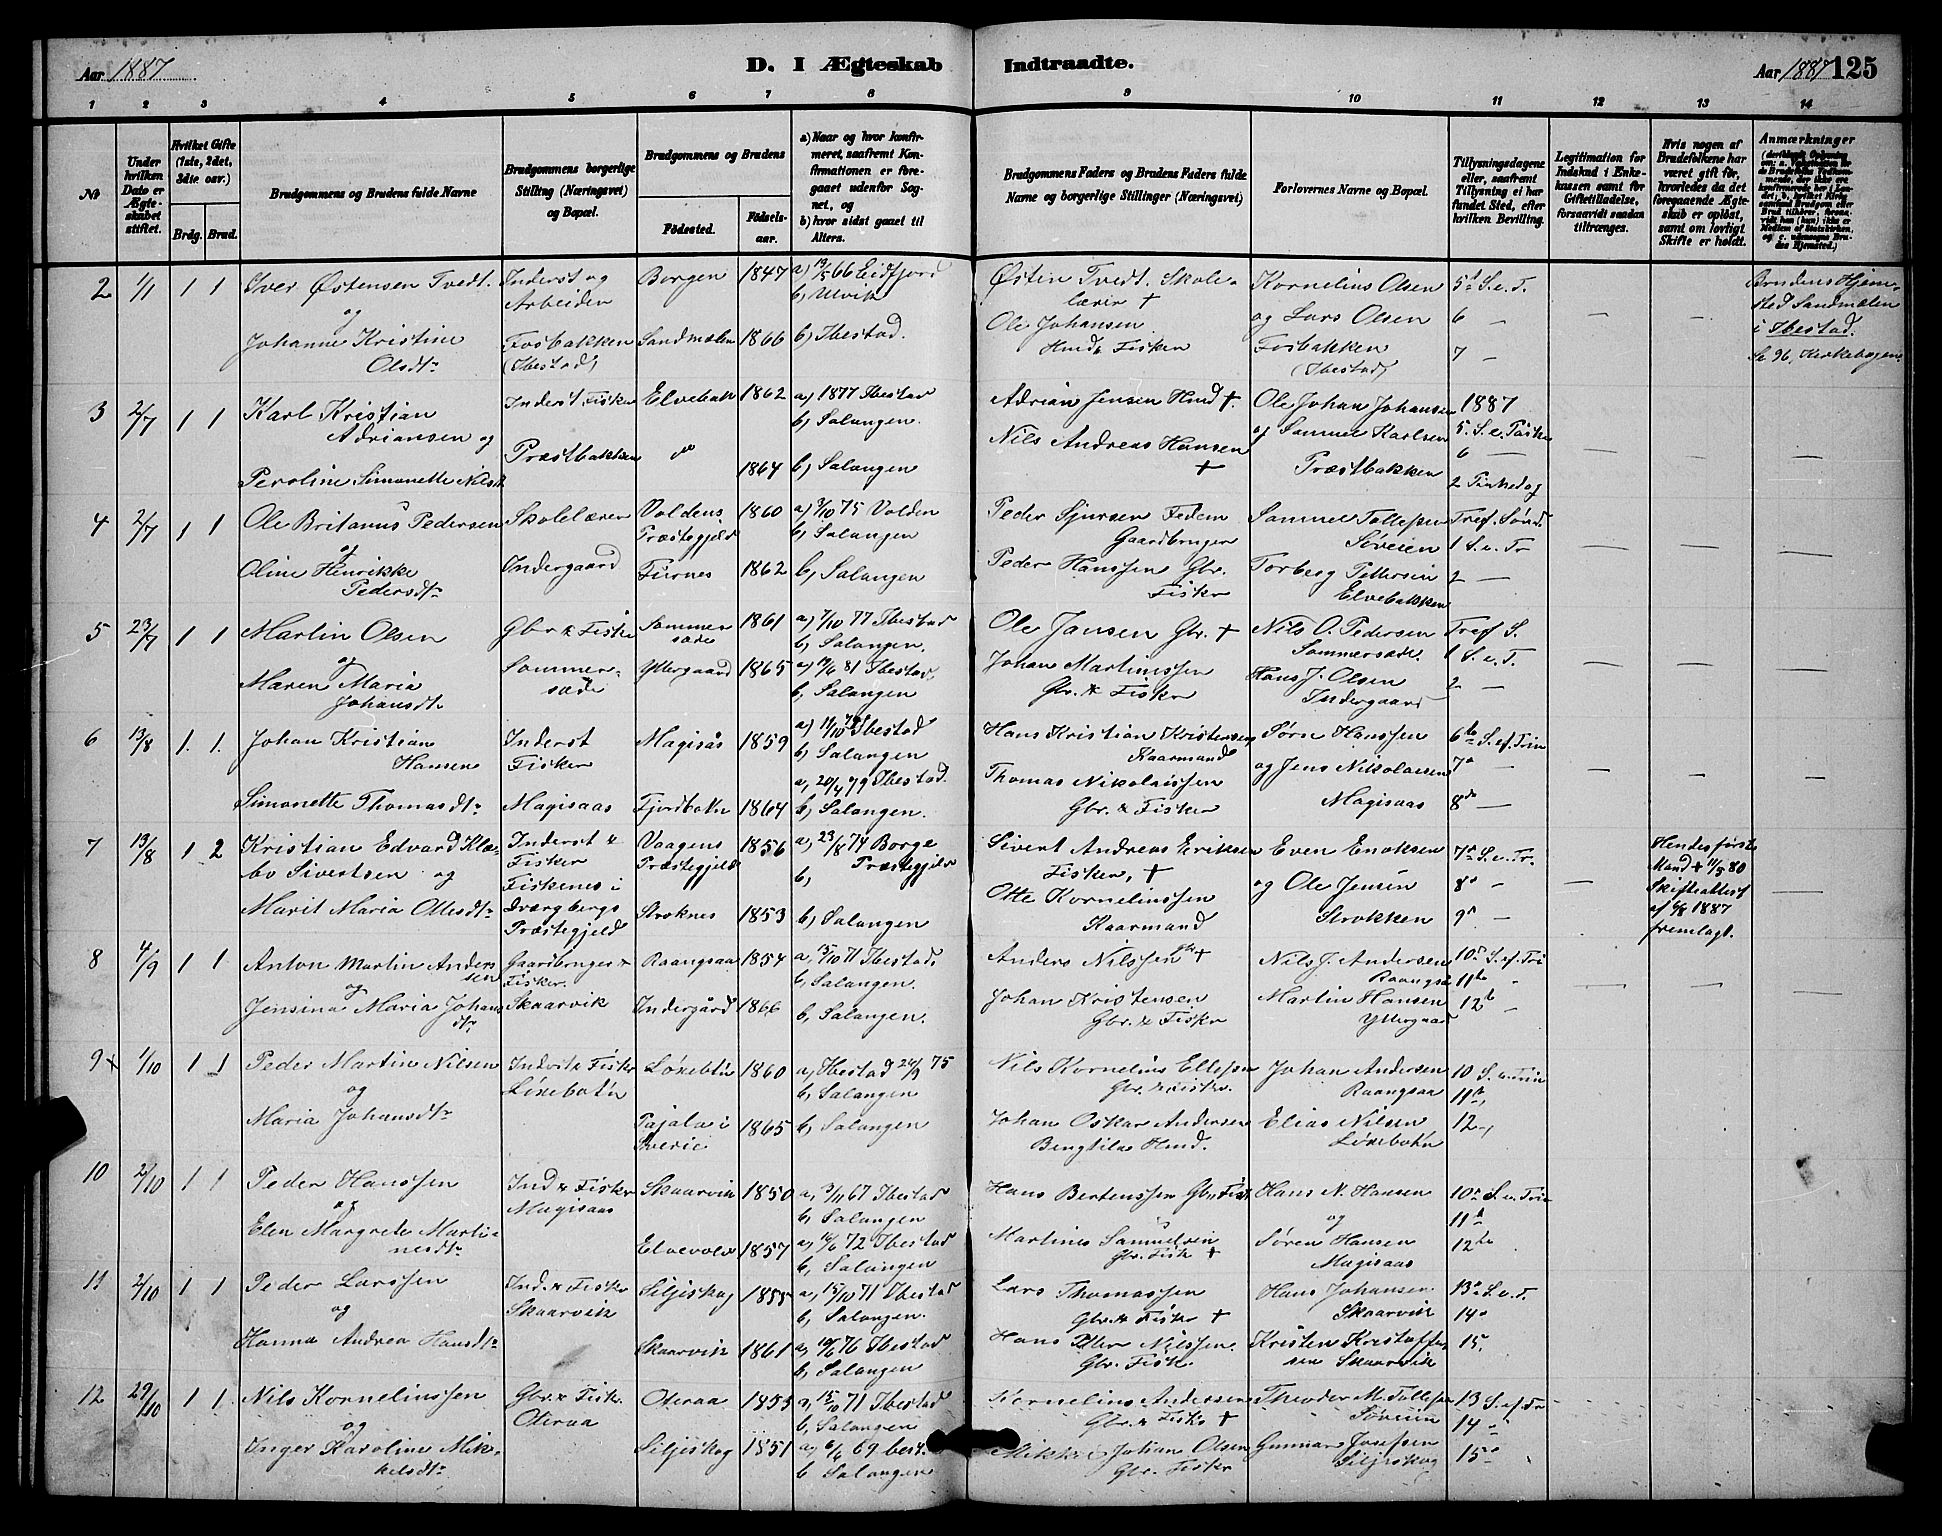 Aar 1887
D. I Ægteskab
Indtraadte.
Aar 1887 125
1 2 3 4 5 6 7 8 9 10 11 12 13 14
№
Under hvilken Dato er Ægteskabet stiftet.
Hvilket Gifte (1ste, 2det, 3die osv.)
Brdg. Brud.
Brudgommens og Brudens fulde Navne
Brudgommens borgerlige Stilling (Næringsvei) og Bopæl.
Brudgommens og Brudens
Fødested.
Fødselsaar.
a) Naar og hvor konfirmeret, saafremt Konfirmationen er foregaaet udenfor Sognet, og
b) hvor sidst gaaet til Alters.
Brudgommens Faders og Brudens Faders fulde Navne og borgerlige Stillinger (Næringsvei)
Forlovernes Navne og Bopæl.
Tillysningsdagene eller, saafremt Tillysning ei har fundet Sted, efter hvilken Bevilling.
Legitimation for Indskud i Enkekassen samt for Giftetilladelse, forsaavidt saadan tiltrænges.
Hvis nogen af Brudefolkene har været gift før, hvorledes da det foregaaende Ægteskab er opløst, samt om lovligt Skifte er holdt.
Anmærkninger
2 1/1 1 1 Iver Østensen Tvedt. Inderst og Arbeider Borgen 1847 a) 13/5 66 Eidfjord b, Ulvik Østen Tvedt. Skolelærer + Kornelius Olsen 5te S.e.T. Brudens Hjemsted Sandmælen i Ibestad.
og Johanne Kristine Olsdtr Fosbakken (Ibestad) Sandmælen 1866 b) Ibestad. Ole Johansen Husm. Fisker og Lars Olsen Fosbakken (Ibestad) 6 — 7 — Se 96, Kirkebogen
3 2/7 1 1 Karl Kristian Adriansen og Inderst. Fisker Elvebak 1862 a) 1877 Ibestad b, Salangen. Adrian Jensen Husm +. Ole Johan Johansen 1887
Peroline Simonette Nilsd Præstbakken do 1864 b, Salangen Nils Andreas Hansen + og Samuel Karlsen Præstbakken 5. S. e. Paske 6 — 2 Pinsedag
4 2/7 1 1 Ole Britanus Pedersen Skolelærer Voldens Præstegjeld 1860 a) 3/10 75 Volden b, Salangen Peder Sjursen Gaardbruger Samuel Tollefsen Søveien Tref. Sønd. 1 S. e. Tr
og Oline Henrikke Pedersdtr Indergaard Furnes 1862 b, Salangen Peder Hanssen Gbr. Fisker Torberg Pettersen Elvebakken 2 —
5 23/7 1 1 Martin Olsen Gbr & Fisker Sommersæde 1861 a) 7/10 77 Ibestad b, Salangen. Ole Jansen Gbr. + Nils O. Pedersen Sommersæde. Tref S. 1 S. e. T.
og Maren Maria Johansdtr Sommersæde Yttergaard 1865 a) 19/6 81 Ibestad b, Salangen Johan Martinussen Gbr. & Fisker Hans J. Olsen Indergaard 2 —
6 13/8 1. 1. Johan Kristian Hansen Inderst Fisker Magisås 1859 a) 11/10 74 Ibestad b, Salangen Hans Kristian Kristensen Kaarmand Sørn Hanssen 6te S. ef. Trin
Simonette Thomasdtr Magisaas Fjordbotn 1864 a, 20/4 79 Ibestad. b, Salangen. Thomas Nikolaissen Gbr. & Fisker og Jens Nikolaisen Magisaas 7de — 8de —
7 13/8 1 2 Kristian Edvard Klæbo Sivertsen og Inderst & Fisker Fiskenes i Dverbergs Præstegjeld Vaagens Præstegjeld 1856 a) 23/8 74 Borge Præstegjeld b, Sivert Andreas Eriksen Fisker, + Even Enoksen 7de S. e. Tr. Hendes første Mand + 11/3 80 Skifteattest af 6/8 1887 fremlagt.
Marit Maria Ottesdtr Stroknes 1853 b, Salangen Otte Kornelinssen Kaarmand og Ole Jensen 8de " 9de —
8 4/9 1 1 Anton Martin Anderssen Gaardbruger & Fisker. Raangsaa 1854 a, 15/10 71 Ibestad. b, Salangen. Anders Nilssen Gbr + Nils J. Andersen Raangsaa 10de S. ef. Tri 11te
og Jensina Maria Johansdtr Skaarvik Indergård 1866 b, Salangen. Johan Kristensen Gbr. & Fisker Martin Hansen Yttergaard 12te —
9 1/10 1 1 Peder Martin Nilsen Inderst & Fisker Løksebotn Løksebtn 1860 a, Ibestad 26/9 75 b, Salangen Nils Kornelius Ellefsen Gbr & Fisker. Johan Andersen Raangsaa 10 S. e. Trin 11te
og Maria Johansdtr Pajala i Sverig 1865 b, Salangen Johan Oskar Andersen Husm. Elias Nilsen Løksebotn 12
10 2/10 1 1 Peder Hanssen Ind & Fisker Magisaas Skaarvik 1850 a, 3/11 67 Ibestad b, Salangen Hans Bertenssen Gbr Fisk Hans N. Hansen 10de S. e. Trin
og Elen Margrete Martinesdtr Elvevoll 1857 a) 16/6 72 Ibestad b, Salangen Martines Samuelsen Gbr. Fisk + og Søren Hansen Magisaas 11te 12te
11 2/10 1 1 Peder Larssen Ind. & Fisker Skaarvik Siljeskog 1855 a, 15/10 71 Ibestad b, Salangen. Lars Thomassen Gbr. & Fisker + Hans Johansen Skaarvik 13de S. e. T. 14de
og Hanna Andrea Hansdtr Skaarvik 1861 a, 18/6 76 Ibestad b, Salangen Hans Peter Nilssen Gbr. Fisker Kristen Kristoffersen Skaarvik 15
12 29/10 1 1 Nils Kornelinssen Gbr. & Fisk. Oteraa Oteraa 1853 a, 15/10 71 Ibestad b, Salangen Kornelius Andersen Gbr. & Fisker + Theodor M. Tollefsen Søveien 13 S. ef. Tr 14
og Inger Karoline Mikkelsdtr Siljeskog 1851 a) 6/6 69 Ibest. b Salangen Mikkel Johan Olsen Gbr. Fisker Gunnar Josefsen Siljeskog 15de